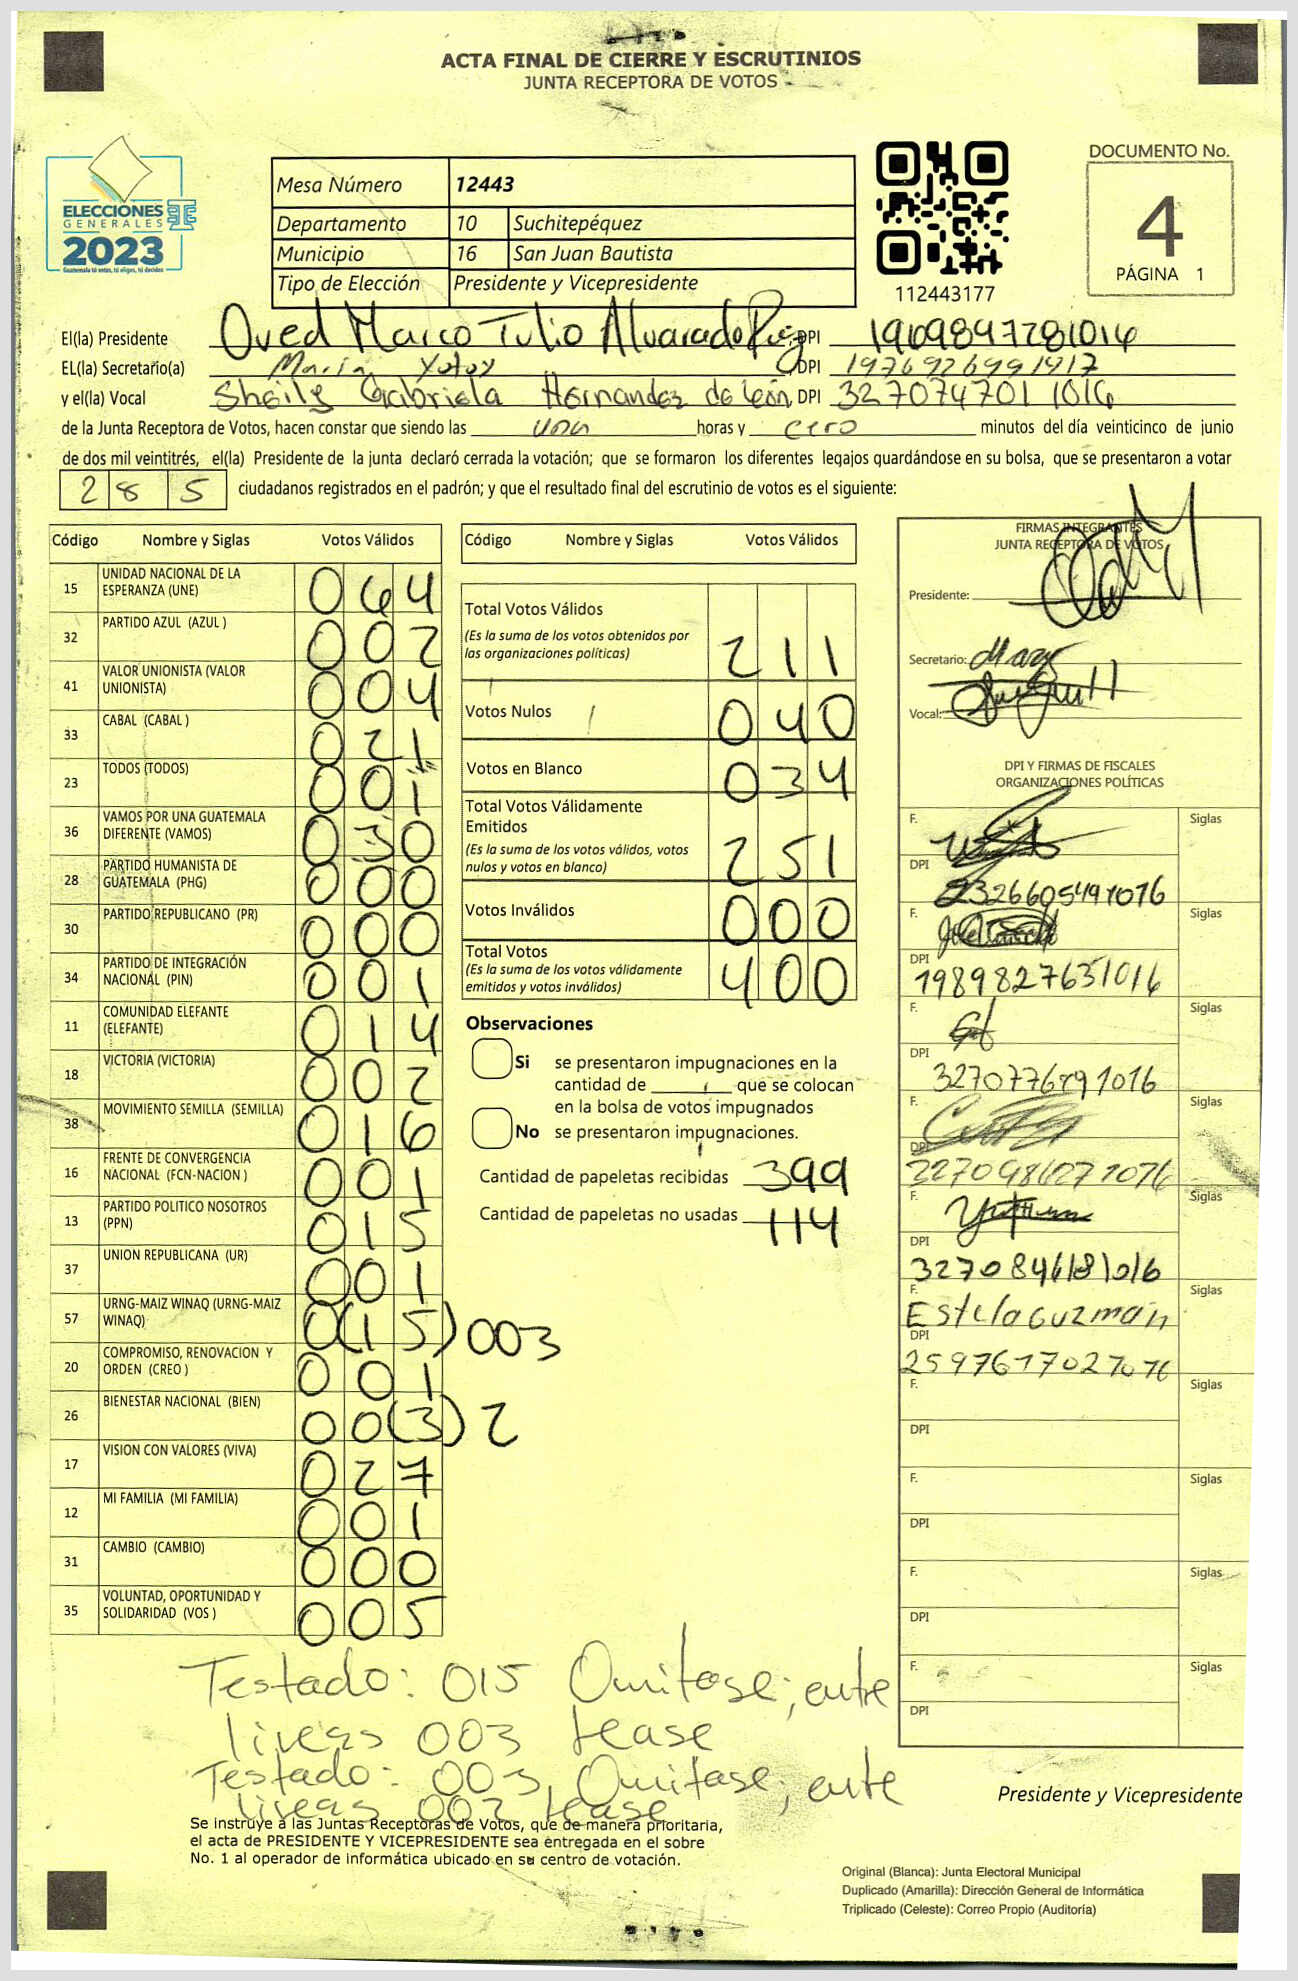 ACTA FINAL DE CIERRE Y ESCRUTINIOS
JUNTA RECEPTORA DE VOTOS
ELECCIONES
GENERALES
2023
Guatemala tú votas, tú eliges, tú decides
Mesa Número 12443
Departamento 10 Suchitepéquez
Municipio 16 San Juan Bautista
Tipo de Elección Presidente y Vicepresidente
112443177
DOCUMENTO No.
4
PÁGINA 1
El(la) Presidente Oved Marco Tulio Alvarado DPI 1969897281016
EL(la) Secretario(a) María Yotoy DPI
y el(la) Vocal Sheily Gabriela Hernandez de León, DPI 327074701 1016
de la Junta Receptora de Votos, hacen constar que siendo las una horas y cero minutos del día veinticinco de junio
de dos mil veintitrés, el(la) Presidente de la junta declaró cerrada la votación; que se formaron los diferentes legajos guardándose en su bolsa, que se presentaron a votar
285 ciudadanos registrados en el padrón; y que el resultado final del escrutinio de votos es el siguiente:
Código Nombre y Siglas Votos Válidos
15 UNIDAD NACIONAL DE LA ESPERANZA (UNE) 064
32 PARTIDO AZUL (AZUL ) 002
41 VALOR UNIONISTA (VALOR UNIONISTA) 004
33 CABAL (CABAL ) 021
23 TODOS (TODOS) 001
36 VAMOS POR UNA GUATEMALA DIFERENTE (VAMOS) 030
28 PARTIDO HUMANISTA DE GUATEMALA (PHG) 000
30 PARTIDO REPUBLICANO (PR) 000
34 PARTIDO DE INTEGRACIÓN NACIONAL (PIN) 001
11 COMUNIDAD ELEFANTE (ELEFANTE) 014
18 VICTORIA (VICTORIA) 002
38 MOVIMIENTO SEMILLA (SEMILLA) 016
16 FRENTE DE CONVERGENCIA NACIONAL (FCN-NACION ) 001
13 PARTIDO POLITICO NOSOTROS (PPN) 015
37 UNION REPUBLICANA (UR) 001
57 URNG-MAIZ WINAQ (URNG-MAIZ WINAQ) 0(15) 003
20 COMPROMISO, RENOVACION Y ORDEN (CREO ) 001
26 BIENESTAR NACIONAL (BIEN) 00(3) 2
17 VISION CON VALORES (VIVA) 027
12 MI FAMILIA (MI FAMILIA) 001
31 CAMBIO (CAMBIO) 000
35 VOLUNTAD, OPORTUNIDAD Y SOLIDARIDAD (VOS ) 005
Código Nombre y Siglas Votos Válidos
Total Votos Válidos
(Es la suma de los votos obtenidos por
las organizaciones políticas) 211
Votos Nulos 040
Votos en Blanco 034
Total Votos Válidamente
Emitidos
(Es la suma de los votos válidos, votos
nulos y votos en blanco) 251
Votos Inválidos 000
Total Votos
(Es la suma de los votos válidamente
emitidos y votos inválidos) 400
Observaciones
Si se presentaron impugnaciones en la
cantidad de que se colocan
en la bolsa de votos impugnados
No se presentaron impugnaciones.
Cantidad de papeletas recibidas 399
Cantidad de papeletas no usadas 114
FIRMAS INTEGRANTES
JUNTA RECEPTORA DE VOTOS
Presidente:
Secretario: Mary
Vocal:
DPI Y FIRMAS DE FISCALES
ORGANIZACIONES POLÍTICAS
F. Siglas
DPI
F. Siglas
DPI 1989827651016
F. Siglas
DPI
F. Siglas
DPI
F. Siglas
DPI 3270846181016
F. Estela Guzmán Siglas
DPI 2597617021016
F. Siglas
DPI
F. Siglas
DPI
F. Siglas
DPI
F. Siglas
DPI
Testado: 015 Omitase; entre
lineas 003 Lease
Testado: 003, Omitase; entre
lineas 002 Lease
Presidente y Vicepresidente
Se instruye a las Juntas Receptoras de Votos, que de manera prioritaria,
el acta de PRESIDENTE Y VICEPRESIDENTE sea entregada en el sobre
No. 1 al operador de informática ubicado en su centro de votación.
Original (Blanca): Junta Electoral Municipal
Duplicado (Amarilla): Dirección General de Informática
Triplicado (Celeste): Correo Propio (Auditoría)